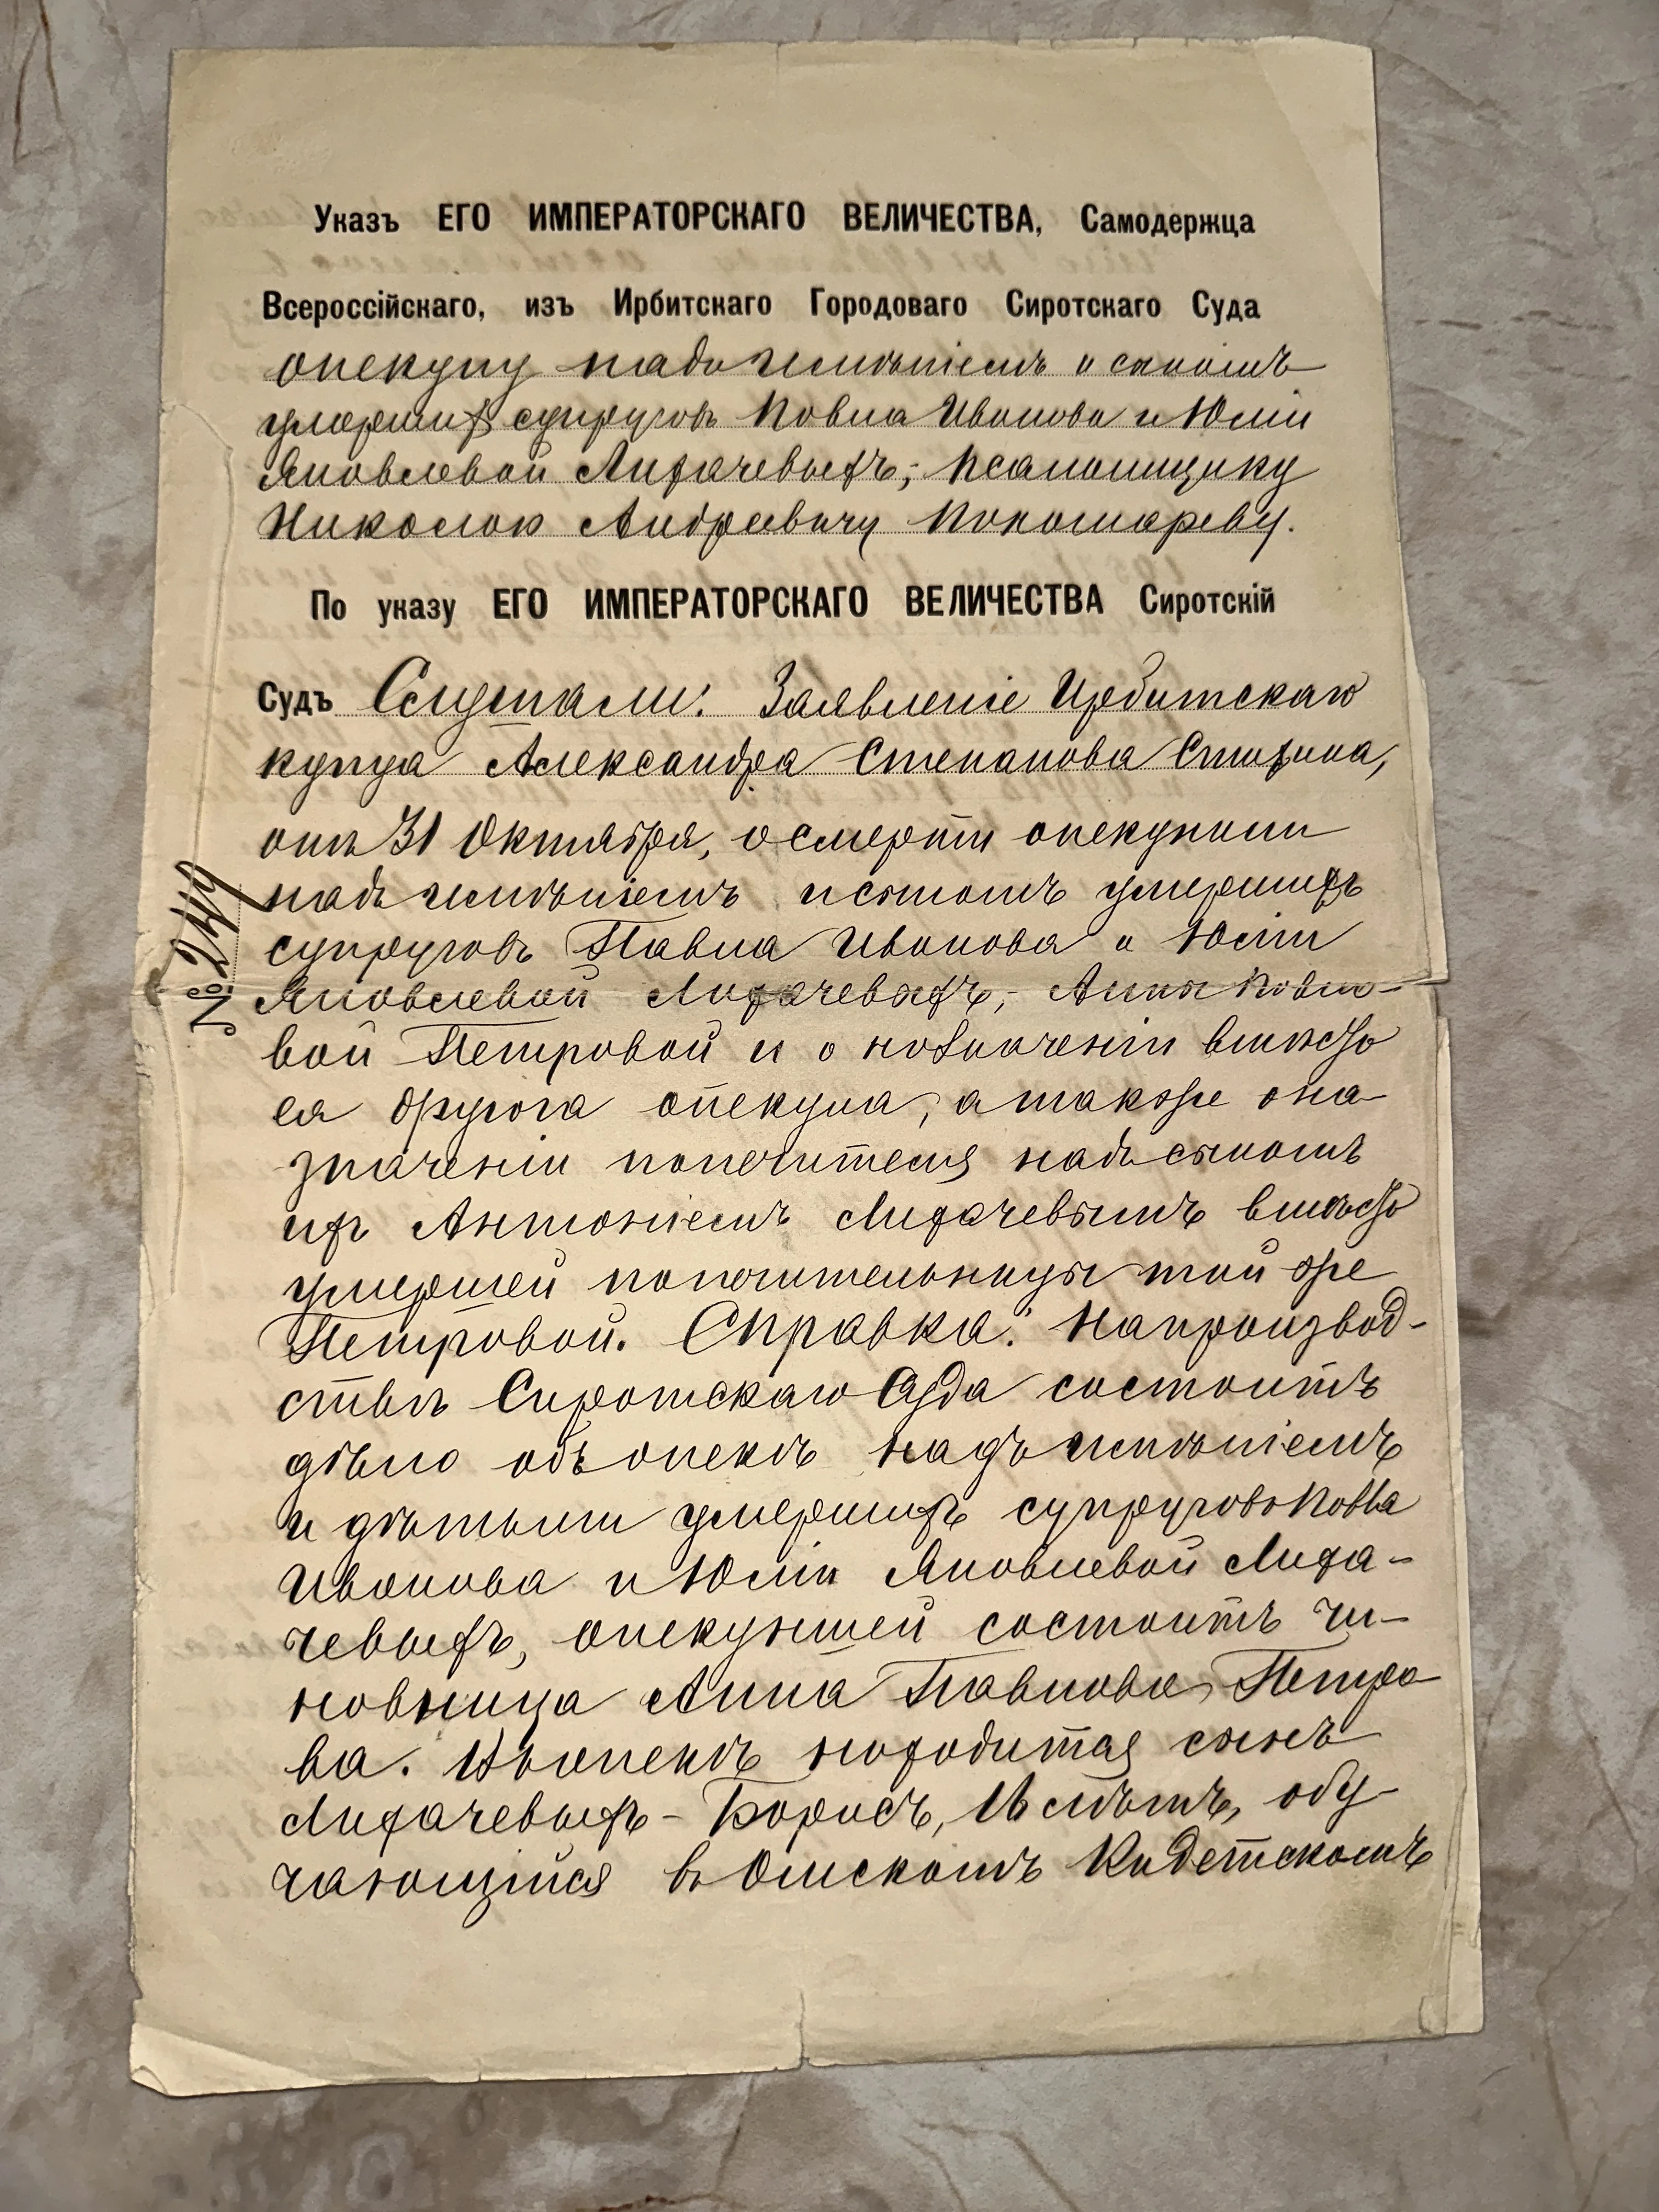 Указъ ЕГО ИМПЕРАТОРСКАГО ВЕЛИЧЕСТВА, Самодержца
Всероссійскаго, изъ Ирбитскаго Городоваго Сиротскаго Суда
опекуну надъ имѣніемъ и сыномъ
умершихъ супруговъ Павла Иванова и Юліи
Яковлевой Лихачевыхъ, Псаломщику
Николаю Андреевичу Пономареву.
По указу ЕГО ИМПЕРАТОРСКАГО ВЕЛИЧЕСТВА Сиротскій
Судъ Слушали: Заявленіе Ирбитскаго
купца Александра Степанова
отъ 31 Октября, о смерти опекунши
надъ имѣніемъ и сыномъ умершихъ
супруговъ Павла Иванова и Юліи
Яковлевой Лихачевыхъ, Анны Павло-
вой Петровой и о назначеніи вмѣсто
ея другога опекуна, а также о на-
значеніи попечителя надъ сыномъ
ихъ Антоніемъ Лихачевымъ вмѣсто
умершей попечительницы той же
Петровой. Справка: На производ-
ствѣ Сиротскаго Суда состоитъ
дѣло объ опекѣ надъ имѣніемъ
и дѣтьми умершихъ супруговъ Павла
Иванова и Юліи Яковлевой Лиха-
чевыхъ, опекуншей состоитъ чи-
новница Анна Павлова Петро-
ва. Въ опекѣ находится сынъ
Лихачевыхъ - Борисъ, лѣтъ, обу-
чающійся въ Омскомъ Кадетскомъ
№